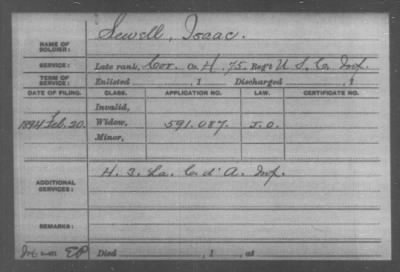 NAME OF SOLDIER: Sewell, Isaac.
SERVICE: Late rank, Cor. Co. H, 75. Reg't U. S. C. Inf.
TERM OF SERVICE: Enlisted , 1 Discharged , 1
DATE OF FILING. CLASS. APPLICATION NO. LAW. CERTIFICATE NO.
Invalid,
1894 Feb. 20. Widow, 591.087. J.O.
Minor,
ADDITIONAL SERVICES: H. 3. La. C. d' A. Inf.
REMARKS:
Died , 1 , at